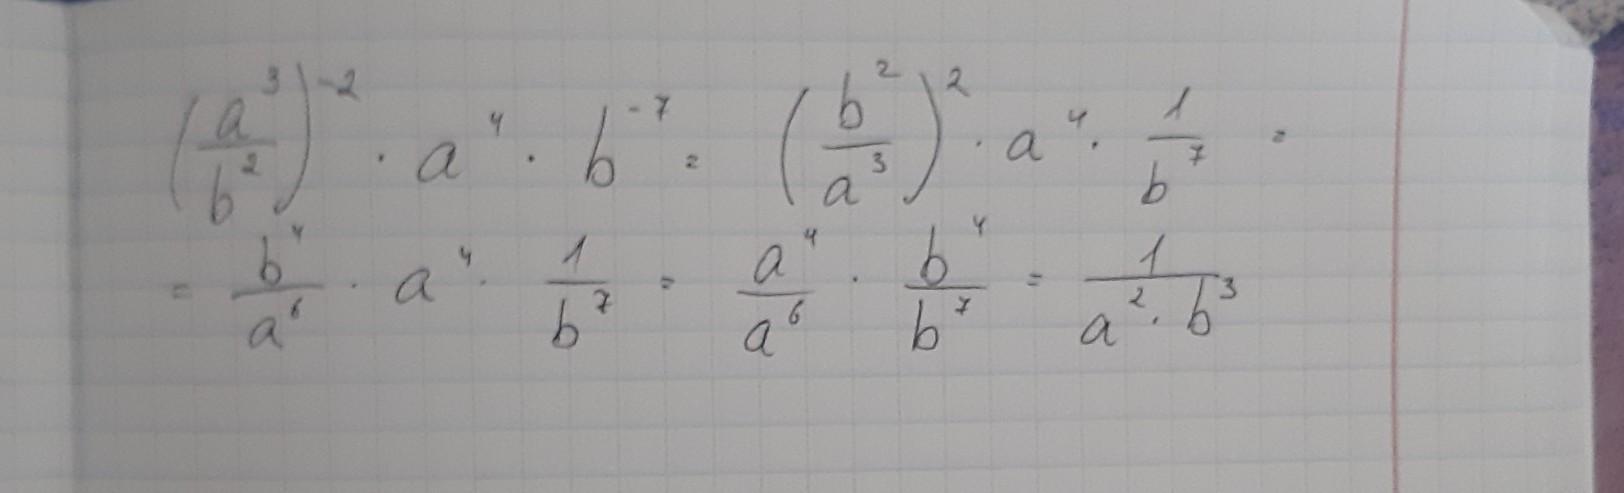 (a³/b²)⁻² · a⁴ · b⁻⁷ = (b²/a³)² · a⁴ · 1/b⁷ =
= b⁴/a⁶ · a⁴ · 1/b⁷ = a⁴/a⁶ · b⁴/b⁷ = 1/(a² · b³)